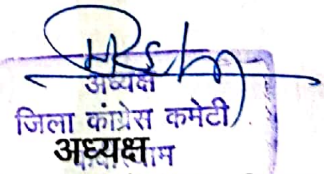 अध्यक्ष
जिला कांग्रेस कमेटी
अध्यक्ष